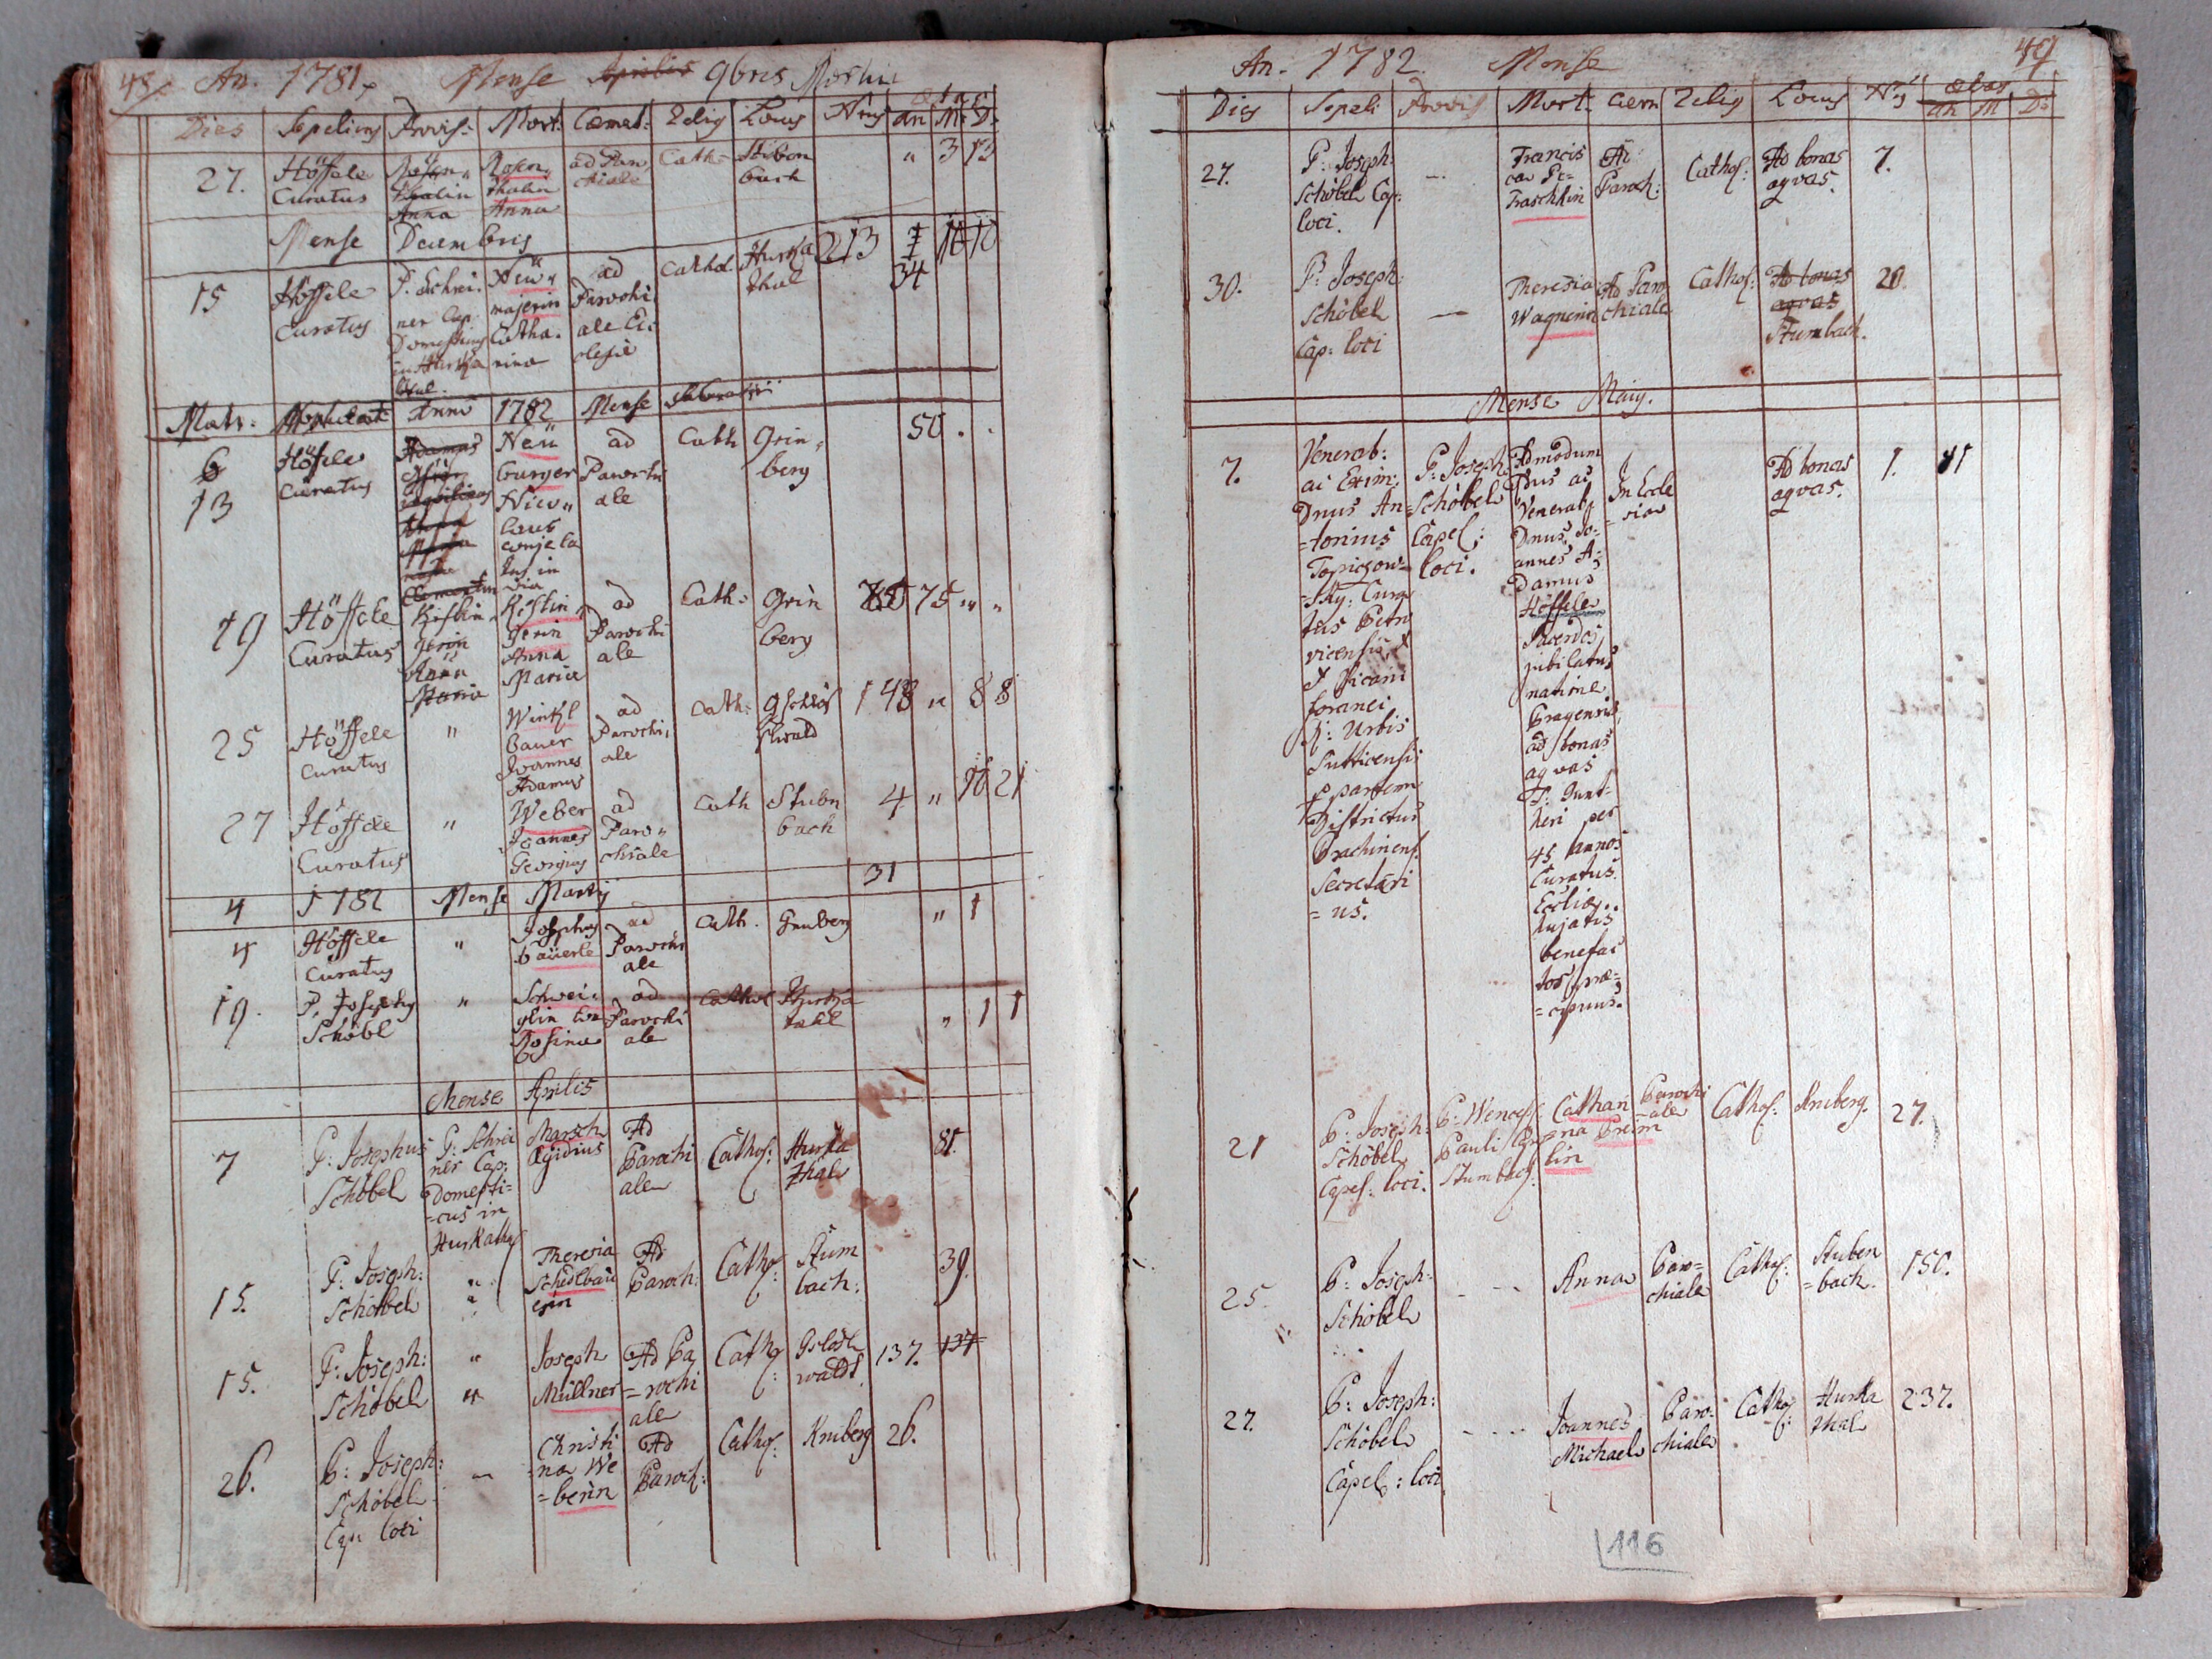 48 An. 1781 Mense Aprilis 9bris Mortui
Dies Sepeliens Provis: Mort: Cæmet: Relig Locus Nrus an M. D.
27. Höffele Curatus Rosen„ thalin Anna Rosen„ thalin Anna ad Paro„ chiale Cath: Stibon bach " 3 13
Mense Decembris
15 Höffele Curatus P. Schrei„ ner Cap. Domesticus in Hurka thal. Neü„ majerin Catha„ rina ad Parochi„ ale Ec„ clesie Cathol. Hurka thal 213 34 10
Matr: Anno 1782 Mense
6
13 Höffele Curatus Adamus Neü burger Nico„ laus ad Parochi ale Cath Grin„ berg 50 . .
19 Höffele Curatus Kislin„ gerin Anna Maria Kislin„ gerin Anna Maria ad Parochi ale Cath: Grin berg 75 " "
25 Höffele Curatus " Winkl bauer Joannes Adamus ad Parochi„ ale Cath: Gschlös slwald 148 " 8 8
27 Höffele Curatus " Weber Joannes Georgius ad Paro„ chiale Cath Stubn bach 4 " 10 21
31
4 1782 Mense Martÿ
4 Höffele Curatus " Josephus baüerle ad Parochi ale Cath. Grinberg " 1
19. P. Josephus Schöbl " Schwei„ glin Rosina ad Parochi ale Cathol Hurka tahl " 1 1
Mense Aprilis
7 P: Josephus Schöbel P: Schrei ner Cap: Domesti= =cus in Hurkathal Marsch Ægidius Ad Parochi ale Cathol: Hurka thal 81.
15. P: Joseph: Schöbel " " Theresia Schedlbaü erin Ad Paroch: Cathol: Stum bach: 39.
15. P: Joseph: Schöbel " " Joseph Müllner Ad Pa =rochi ale Cathol: Gslösl waldt 137. 137
26. P: Joseph: Schöbel Cap: loci — Christi =na We =berin Ad Paroch: Cathol: Kniberg 26.
An. 1782 Mense 49
Dies Sepeli Provis Mort: Cæm Relig Locus Nrus ætas an M D:
27. P: Joseph: Schöbel Cap: loci. — Francis ca Pe= Traschkin Ad Paroch: Cathol: Ad bonas aqvas. 7.
30. P: Joseph: Schöbel Cap: loci — Theresia Wagnerin Ad Paro chiale Cathol: Ad bonas aqvas Stumbach. 20.
Mense Maij.
7. Venerab:
ac Exim: P: Joseph: Admodum
Dnus An= Schöbel Dnus ac In Eccle Ad bonas 1. 81
=tonius Capel: Venerab: =sia aqvas.
Topiczow= loci. Dnus Jo=
=sky: Cura annes A=
tus Petro Damus
vicensis, Höffele
Vicarii Sacerdos
foranei jubilatus
R: Urbis natione
Sutticensis Pragensis
partem ad bonas
Districtus aqvas
Prachinens: P: Gunt=
Secretari heri per
=us. 45 annos
Curatus.
Eccliæ
hujatis
benefac
tor præ=
=cipuus.
21 P: Joseph: Schöbel Capel: loci. P: Wencesl: Pauli Stumbach: Cathari na Preim lin Parochi ale Cathol: Kniberg. 27.
25. P: Joseph: Schöbel - -- Anna Paro= chiale Cathol: Stuben =bach. 150.
27. P: Joseph: Schöbel Capel: loci - - - - Joannes Michael Paro= chiale Cathol: Hurka thal 237.
116